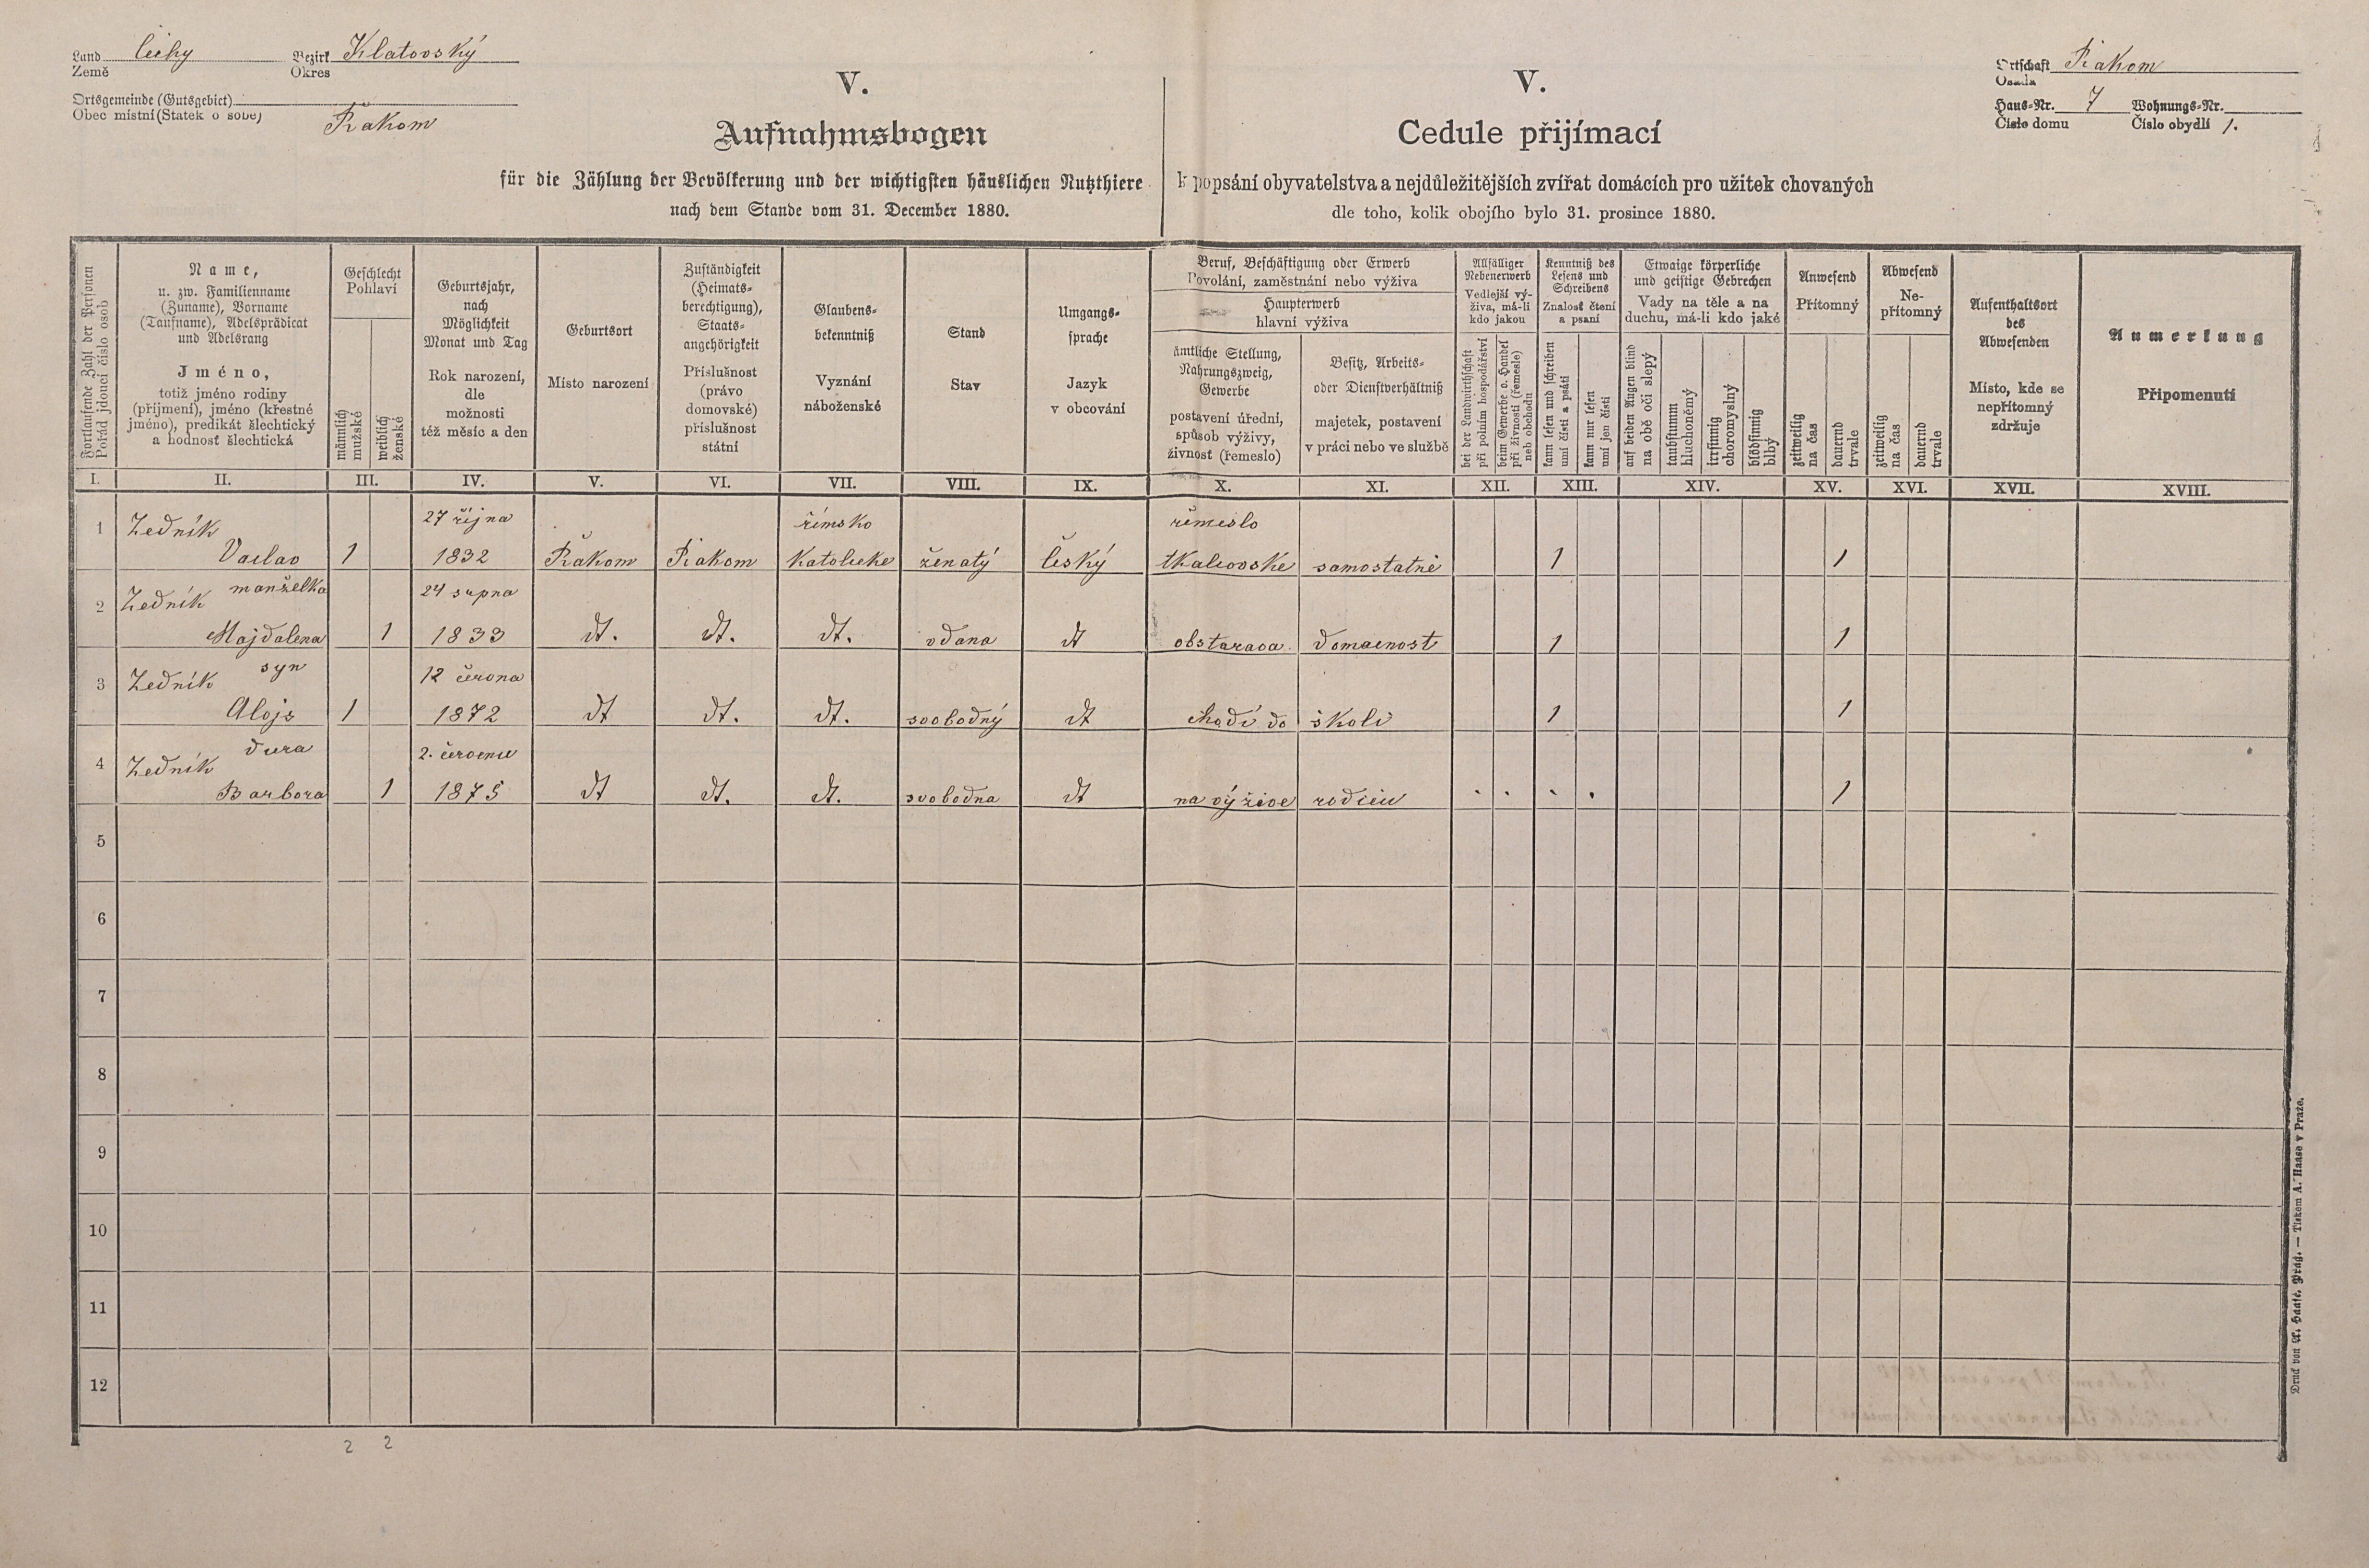 Land Čechy Bezirk Klatovský
Země Okres
Ortsgemeinde (Gutsgebiet)
Obec místní (Statek o sobě) Řakom
V.
Aufnahmsbogen
für die Zählung der Bevölkerung und der wichtigsten häuslichen Nutzthiere
nach dem Stande vom 31. December 1880.
V.
Cedule přijímací
k popsání obyvatelstva a nejdůležitějších zvířat domácích pro užitek chovaných
dle toho, kolik obojího bylo 31. prosince 1880.
Ortschaft Řakom
Osada
Haus-Nr. 7 Wohnungs-Nr.
Číslo domu Číslo obydlí 1.
Fortlaufende Zahl der Personen
Pořád jdoucí číslo osob
Name,
u. zw. Familienname
(Zuname), Vorname
(Taufname), Adelsprädicat
und Adelsrang
Jméno,
totiž jméno rodiny
(příjmení), jméno (křestné
jméno), predikát šlechtický
a hodnosť šlechtická
Geschlecht
Pohlaví
männlich
mužské
weiblich
ženské
Geburtsjahr,
nach
Möglichkeit
Monat und Tag
Rok narození,
dle
možnosti
též měsíc a den
Geburtsort
Místo narození
Zuständigkeit
(Heimats-
berechtigung),
Staats-
angehörigkeit
Příslušnost
(právo
domovské)
příslušnost
státní
Glaubens-
bekenntniß
Vyznání
náboženské
Stand
Stav
Umgangs-
sprache
Jazyk
v obcování
Beruf, Beschäftigung oder Erwerb
Povolání, zaměstnání nebo výživa
Haupterwerb
hlavní výživa
ämtliche Stellung,
Nahrungszweig,
Gewerbe
postavení úřední,
spůsob výživy,
živnosť (řemeslo)
Besitz, Arbeits-
oder Dienstverhältniß
majetek, postavení
v práci nebo ve službě
Allfälliger
Nebenerwerb
Vedlejší vý-
živa, má-li
kdo jakou
bei der Landwirthschaft
při polním hospodářství
beim Gewerbe o. Handel
při živnosti (řemesle)
neb obchodu
Kenntniß des
Lesens und
Schreibens
Znalosť čtení
a psaní
kann lesen und schreiben
umí čísti a psáti
kann nur lesen
umí jen čísti
Etwaige körperliche
und geistige Gebrechen
Vady na těle a na
duchu, má-li kdo jaké
auf beiden Augen blind
na obě oči slepý
taubstumm
hluchoněmý
irrsinnig
choromyslný
blödsinnig
blbý
Anwesend
Přítomný
zeitweilig
na čas
dauernd
trvale
Abwesend
Ne-
přítomný
zeitweilig
na čas
dauernd
trvale
Aufenthaltsort
des
Abwesenden
Místo, kde se
nepřítomný
zdržuje
Anmerkung
Připomenutí
I. II. III. IV. V. VI. VII. VIII. IX. X. XI. XII. XIII. XIV. XV. XVI. XVII. XVIII.
1 Zedník 27 října římsko řemeslo
Vaclav 1 1832 Řakom Řakom katolicke ženatý český tkalcovske samostatně 1 1
2 Zedník manželka 24 srpna
Majdalena 1 1833 dt. dt. dt. vdana dt obstarava domacnost 1 1
3 Zedník syn 12 června
Alojs 1 1872 dt dt. dt. svobodný dt chodí do školi 1 1
4 Zedník dcera 2. července
Barbora 1 1875 dt dt. dt. svobodna dt na výžive rodicu 1
5
6
7
8
9
10
11
12
2 2
Druck von A. Haase, Prag. — Tiskem A. Haase v Praze.